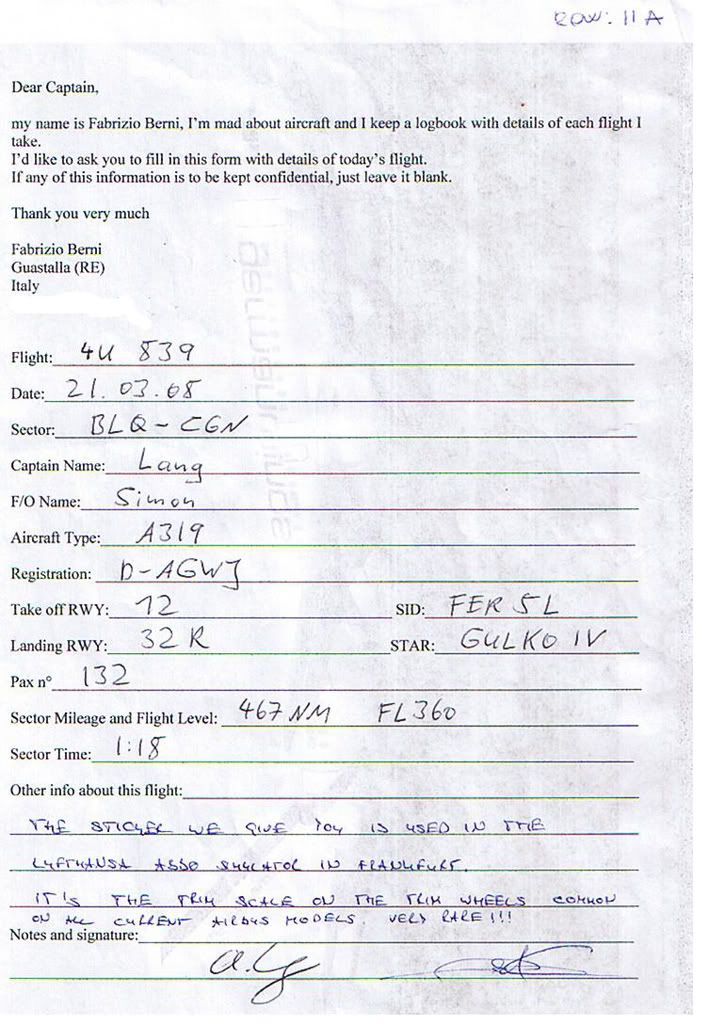 ROW: 11 A
Dear Captain,
my name is Fabrizio Berni, I'm mad about aircraft and I keep a logbook with details of each flight I
take.
I'd like to ask you to fill in this form with details of today's flight.
If any of this information is to be kept confidential, just leave it blank.
Thank you very much
Fabrizio Berni
Guastalla (RE)
Italy
Flight: 4U 839
Date: 21.03.08
Sector: BLQ - CGN
Captain Name: Lang
F/O Name: Simon
Aircraft Type: A319
Registration: D-AGWJ
Take off RWY: 12 SID: FER 5L
Landing RWY: 32 R STAR: GULKO 1V
Pax n° 132
Sector Mileage and Flight Level: 467 NM FL360
Sector Time: 1:18
Other info about this flight:
THE STICKER WE GIVE YOU IS USED IN THE
LUFTHANSA SIMULATOR IN FRANKFURT.
IT'S THE TRIM SCALE ON THE TRIM WHEELS COMMON
ON ALL CURRENT AIRBUS MODELS. VERY RARE!!!
Notes and signature: